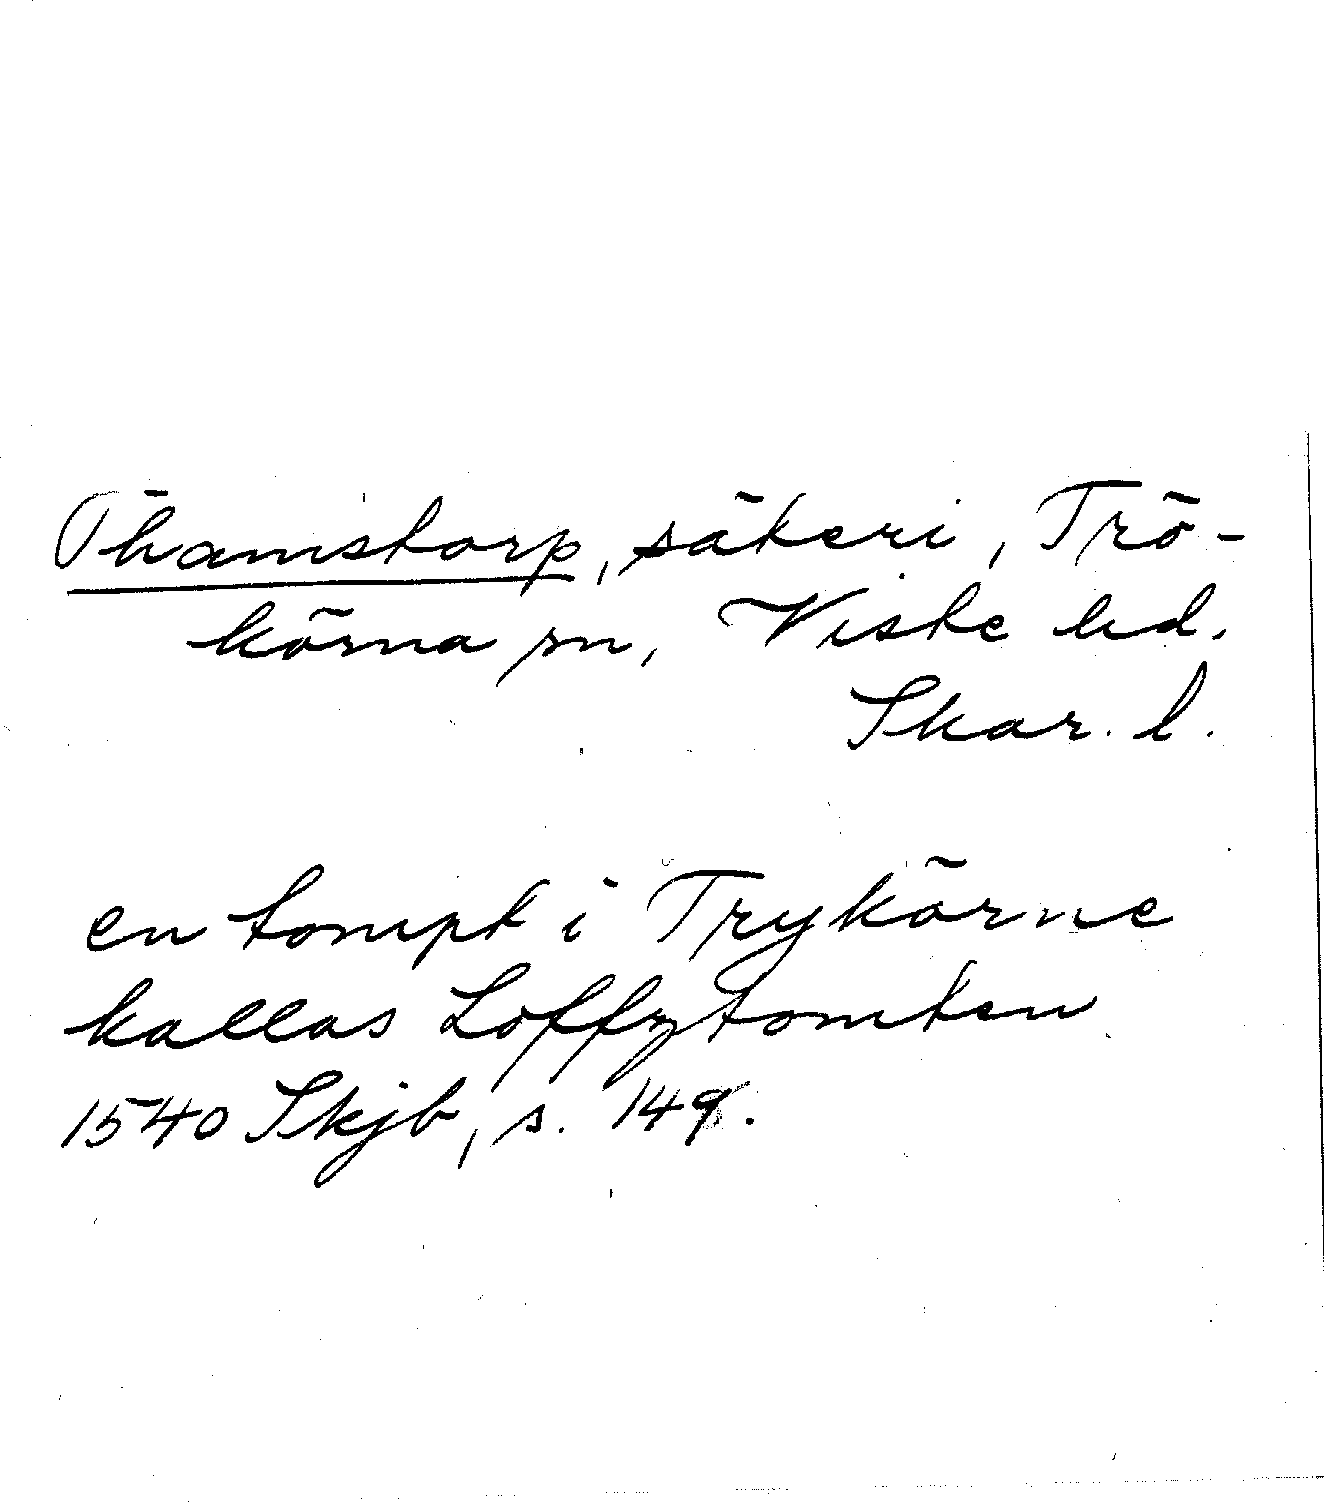 Öhamstorp, säteri, Trö-
körna sn, Viste hd.
Skar. l.
en tompt i Trykörne
kallas Loffztomten
1540 Skjb, s. 149.